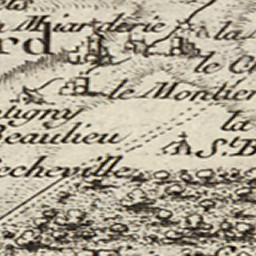 Miarderie
rd
la
le
le Montier
tigny
la
Beaulieu
St B
écheville